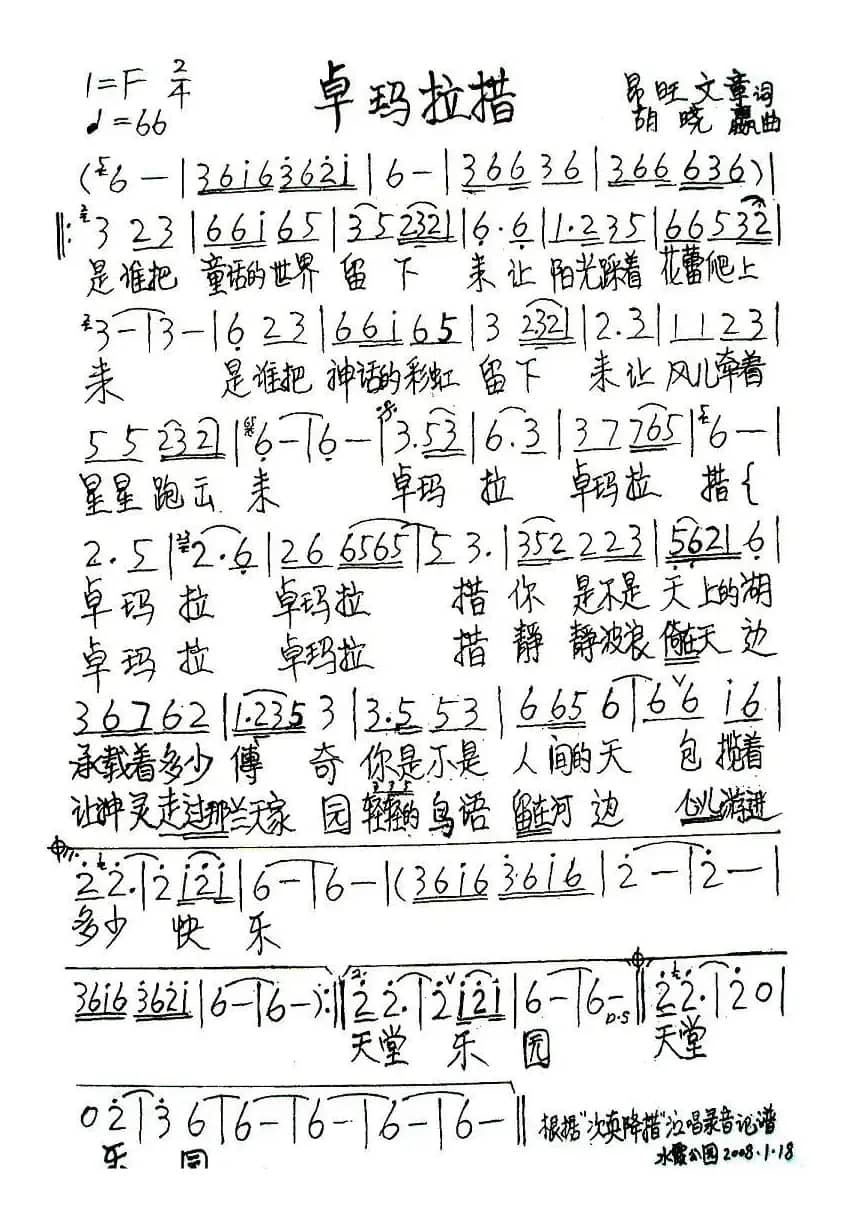 1=F 2/4
♩=66
卓玛拉措
昂旺文章词
胡晓 曲
(6 — | 3 6 i 6 3 6 2 i | 6 — | 3 6 6 3 6 | 3 6 6 6 3 6 ) |
‖: 3 2 3 | 6 6 i 6 5 | 3 5 2 3 2 1 | 6 · 6 | 1 · 2 3 5 | 6 6 5 3 2 |
是谁把 童话的世界 留 下 来 让 阳光踩着 花蕾爬上
3 — | 3 — | 6 2 3 | 6 6 i 6 5 | 3 2 3 2 1 | 2 . 3 | 1 1 2 3 |
来 是谁把 神话的彩虹 留下 来 让 风儿牵着
5 5 2 3 2 1 | 6 — | 6 — | 3 . 5 3 | 6 . 3 | 3 7 7 6 5 | 6 — |
星星跑去 来 卓玛 拉 卓玛拉 措 {
2 . 5 | 2 . 6 | 2 6 6 5 6 5 | 5 3 . | 3 5 2 2 2 3 | 5 6 2 1 6 |
卓玛 拉 卓玛拉 措 你 是不是 天上的湖
卓玛 拉 卓玛拉 措 静 静波浪 倚在天 边
3 6 7 6 2 | 1 . 2 3 5 3 | 3 . 5 5 3 | 6 6 5 6 | 6 6 i 6 |
承载着多少 傳 奇 你是不是 人间的天 包 揽着
让神灵走过那兰天家 园 轻轻的 鸟语 留在河 边 心儿游进
2 2 . | 2 i 2 i | 6 — | 6 — | ( 3 6 i 6 3 6 i 6 | 2 — | 2 — |
多少 快 乐
3 6 i 6 3 6 2 i | 6 — | 6 — ) :‖ 2. 2 2 . | 2 i 2 i | 6 — | 6 — D.S ‖ 2 2 . | 2 0 |
天堂 乐 园 天堂
0 2 | 3 6 | 6 — | 6 — | 6 — | 6 — | 6 — ‖
乐 园
根据“次真降措”演唱录音记谱
水霞公园 2008.1.18